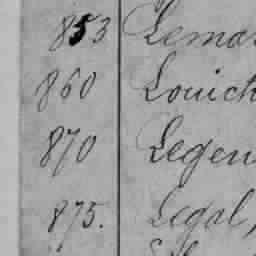 853 Lemar
860 Louich
870 Legen
875. Legal,